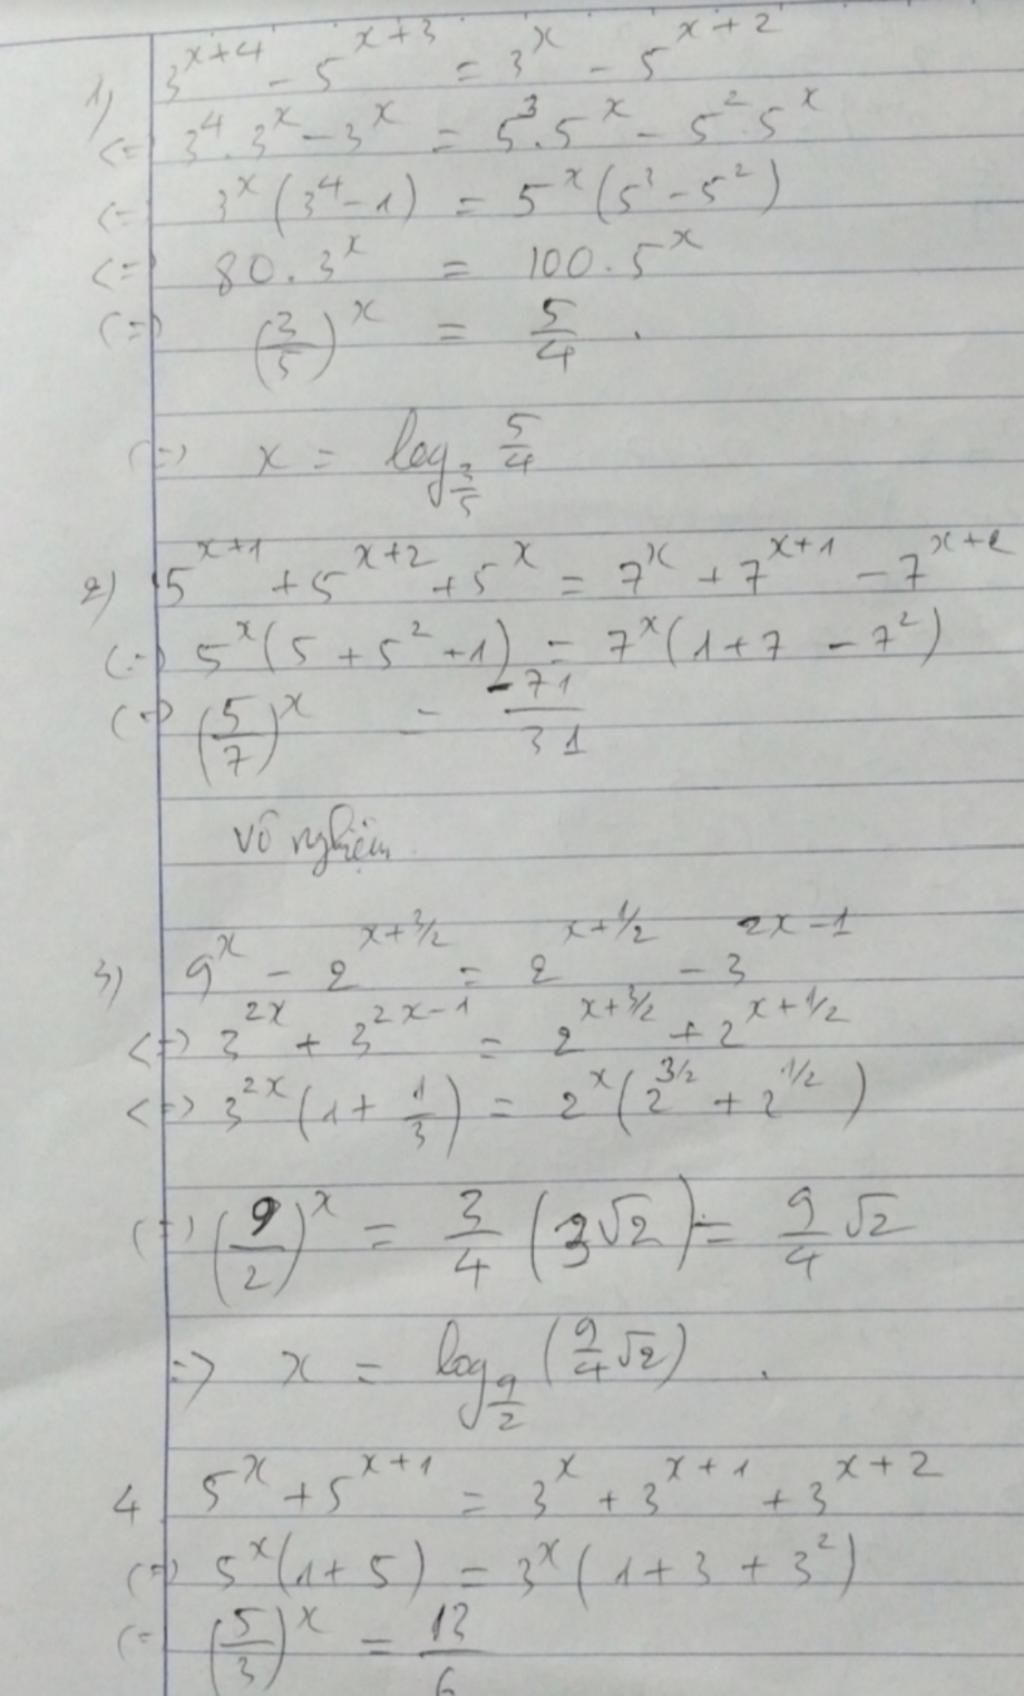 1) 3^{x+4} - 5^{x+3} = 3^x - 5^{x+2}
<=> 3^4 . 3^x - 3^x = 5^3 . 5^x - 5^2 . 5^x
<=> 3^x (3^4 - 1) = 5^x (5^3 - 5^2)
<=> 80 . 3^x = 100 . 5^x
<=> (3/5)^x = 5/4 .
<=> x = log_{3/5} 5/4
2) 5^{x+1} + 5^{x+2} + 5^x = 7^x + 7^{x+1} - 7^{x+2}
<=> 5^x (5 + 5^2 + 1) = 7^x (1 + 7 - 7^2)
<=> (5/7)^x = -71/31
vô nghiệm.
3) 9^x - 2^{x+3/2} = 2^{x+1/2} - 3^{2x-1}
<=> 3^{2x} + 3^{2x-1} = 2^{x+3/2} + 2^{x+1/2}
<=> 3^{2x} (1 + 1/3) = 2^x (2^{3/2} + 2^{1/2})
<=> (9/2)^x = 3/4 (3√2) = 9/4 √2
=> x = log_{9/2} (9/4 √2) .
4 5^x + 5^{x+1} = 3^x + 3^{x+1} + 3^{x+2}
<=> 5^x (1 + 5) = 3^x (1 + 3 + 3^2)
<=> (5/3)^x = 13/6